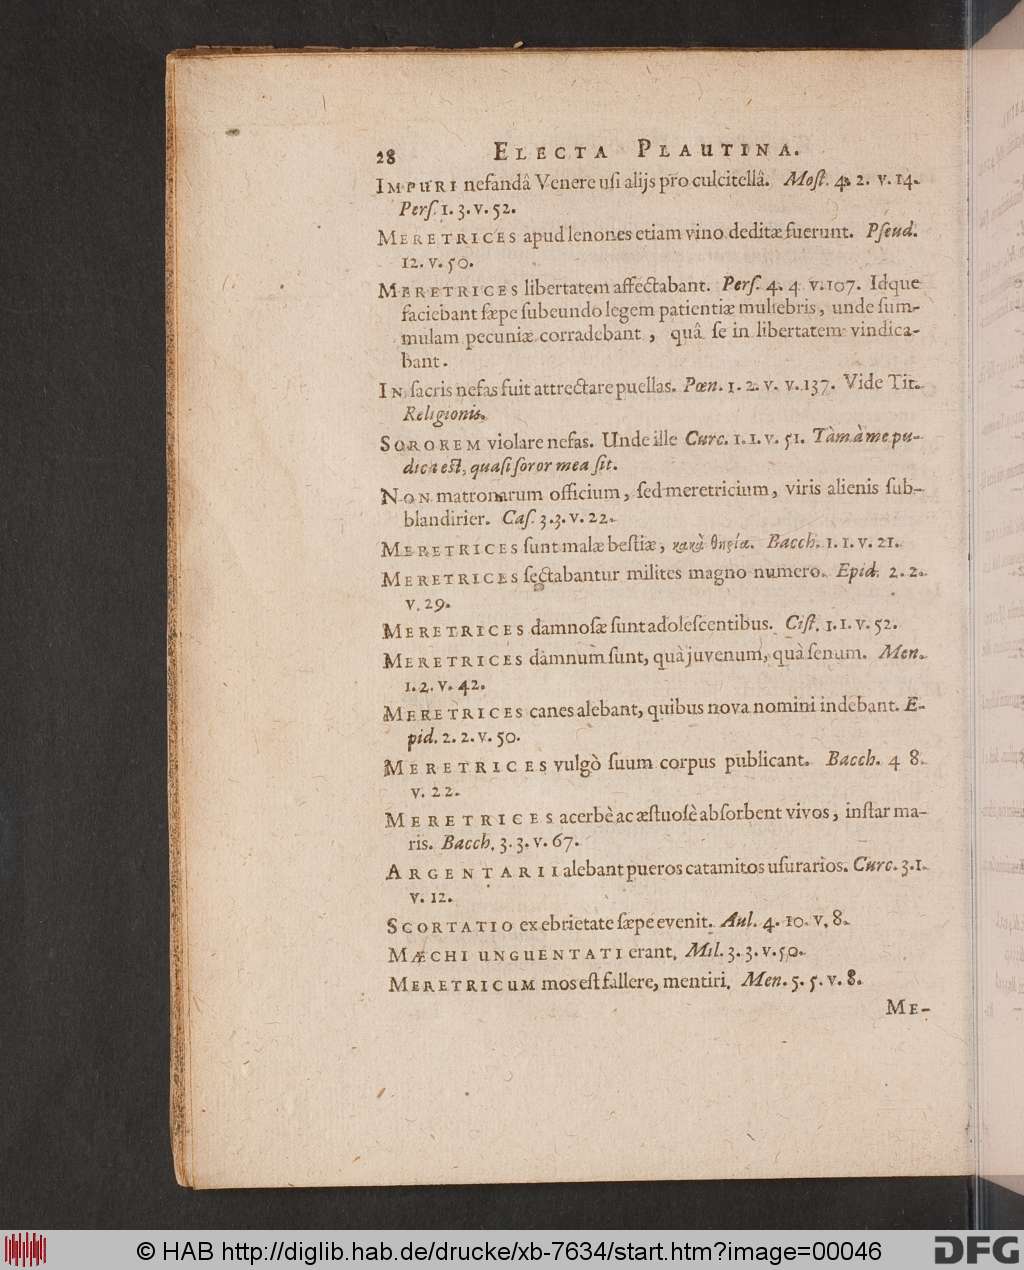 28 ELECTA PLAUTINA.
IMPURI nefandâ Venere usi alijs pro culcitellâ. Most. 4. 2. v. 14.
Pers. 1. 3. v. 52.
MERETRICES apud lenones etiam vino deditæ fuerunt. Pseud.
12. v. 50.
MERETRICES libertatem affectabant. Pers. 4. 4 v. 107. Idque
faciebant sæpe subeundo legem patientiæ muliebris, unde sum-
mulam pecuniæ corradebant, quâ se in libertatem vindica-
bant.
IN sacris nefas fuit attrectare puellas. Pœn. 1. 2. v. v. 137. Vide Tit.
Religionis.
SOROREM violare nefas. Unde ille Curc. 1. 1. v. 51. Tàm à me pu-
dica est, quasi soror mea sit.
NON matronarum officium, sed meretricium, viris alienis sub-
blandirier. Cas. 3. 3. v. 22.
MERETRICES sunt malæ bestiæ, κακὰ θηρία. Bacch. 1. 1. v. 21.
MERETRICES sectabantur milites magno numero. Epid. 2. 2.
v. 29.
MERETRICES damnosæ sunt adolescentibus. Cist. 1. 1. v. 52.
MERETRICES damnum sunt, quà juvenum, quà senum. Men.
1. 2. v. 42.
MERETRICES canes alebant, quibus nova nomini indebant. E-
pid. 2. 2. v. 50.
MERETRICES vulgò suum corpus publicant. Bacch. 4 8.
v. 22.
MERETRICES acerbè ac æstuosè absorbent vivos, instar ma-
ris. Bacch. 3. 3. v. 67.
ARGENTARII alebant pueros catamitos usurarios. Curc. 3. 1.
v. 12.
SCORTATIO ex ebrietate sæpe evenit. Aul. 4. 10. v. 8.
MÆCHI UNGUENTATI erant. Mil. 3. 3. v. 50.
MERETRICUM mos est fallere, mentiri. Men. 5. 5. v. 8.
ME-
© HAB http://diglib.hab.de/drucke/xb-7634/start.htm?image=00046
DFG